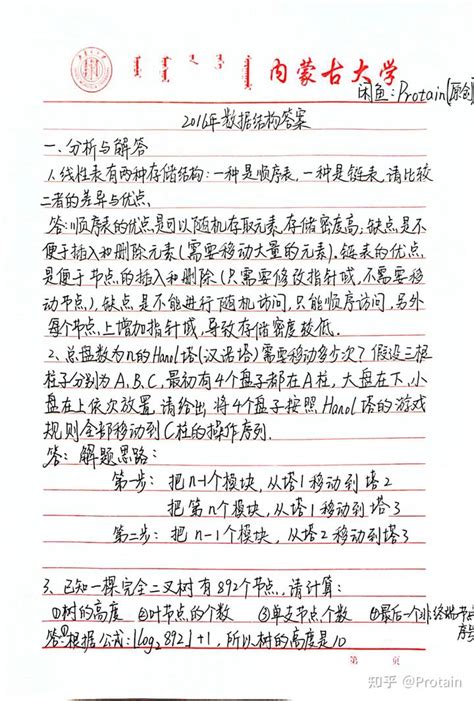 内蒙古大学
闲鱼:Protain[原创]
2016年数据结构答案
一、分析与解答
1.线性表有两种存储结构:一种是顺序表,一种是链表,请比较
二者的差异与优点.
答:顺序表的优点是可以随机存取元素,存储密度高;缺点是不
便于插入和删除元素(需要移动大量的元素).链表的优点
是便于节点的插入和删除(只需要修改指针域,不需要移
动节点),缺点是不能进行随机访问,只能顺序访问,另外
每个节点上增加指针域,导致存储密度较低.
2、总盘数为n的Hanol塔(汉诺塔)需要移动多少次?假设三根
柱子分别为A、B、C,最初有4个盘子都在A柱,大盘在下,小
盘在上依次放置,请给出将4个盘子按照Hanol塔的游戏
规则全部移动到C柱的操作序列.
答:解题思路:
第一步:把n-1个模块,从塔1移动到塔2
把第n个模块,从塔1移动到塔3
第二步:把n-1个模块,从塔2移动到塔3
3、已知一棵完全二叉树有892个节点,请计算:
①树的高度 ②叶节点的个数 ③单支节点个数 ④最后一个非终端节点
序号
答:①根据公式:⌊log₂892⌋+1,所以树的高度是10
第 页
知乎 @Protain